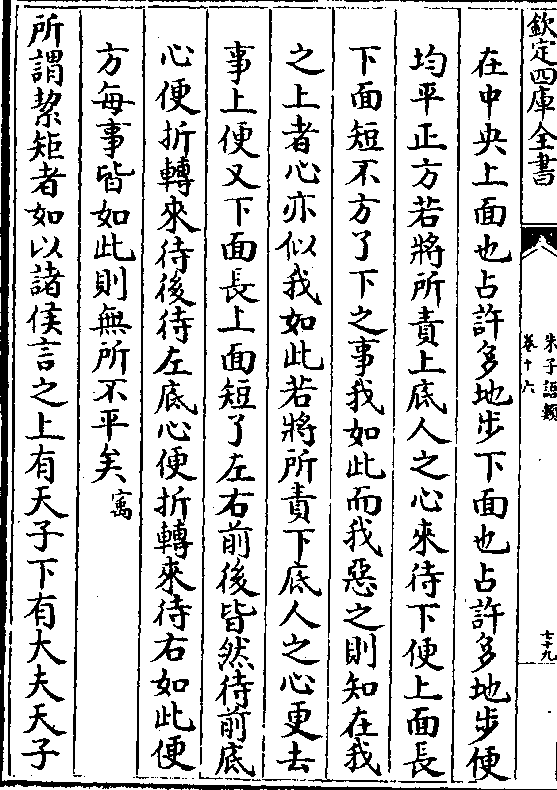 欽定四庫全書
朱子語類
卷十六
七九
在中央上面也占許多地步下面也占許多地步便
均平正方若將所責上底人之心來待下便上面長
下面短不方了下之事我如此而我惡之則知在我
之上者心亦似我如此若將所責下底人之心更去
事上便又下面長上面短了左右前後皆然待前底
心便折轉來待後待左底心便折轉來待右如此便
方每事皆如此則無所不平矣㝢
所謂絜矩者如以諸侯言之上有天子下有大夫天子